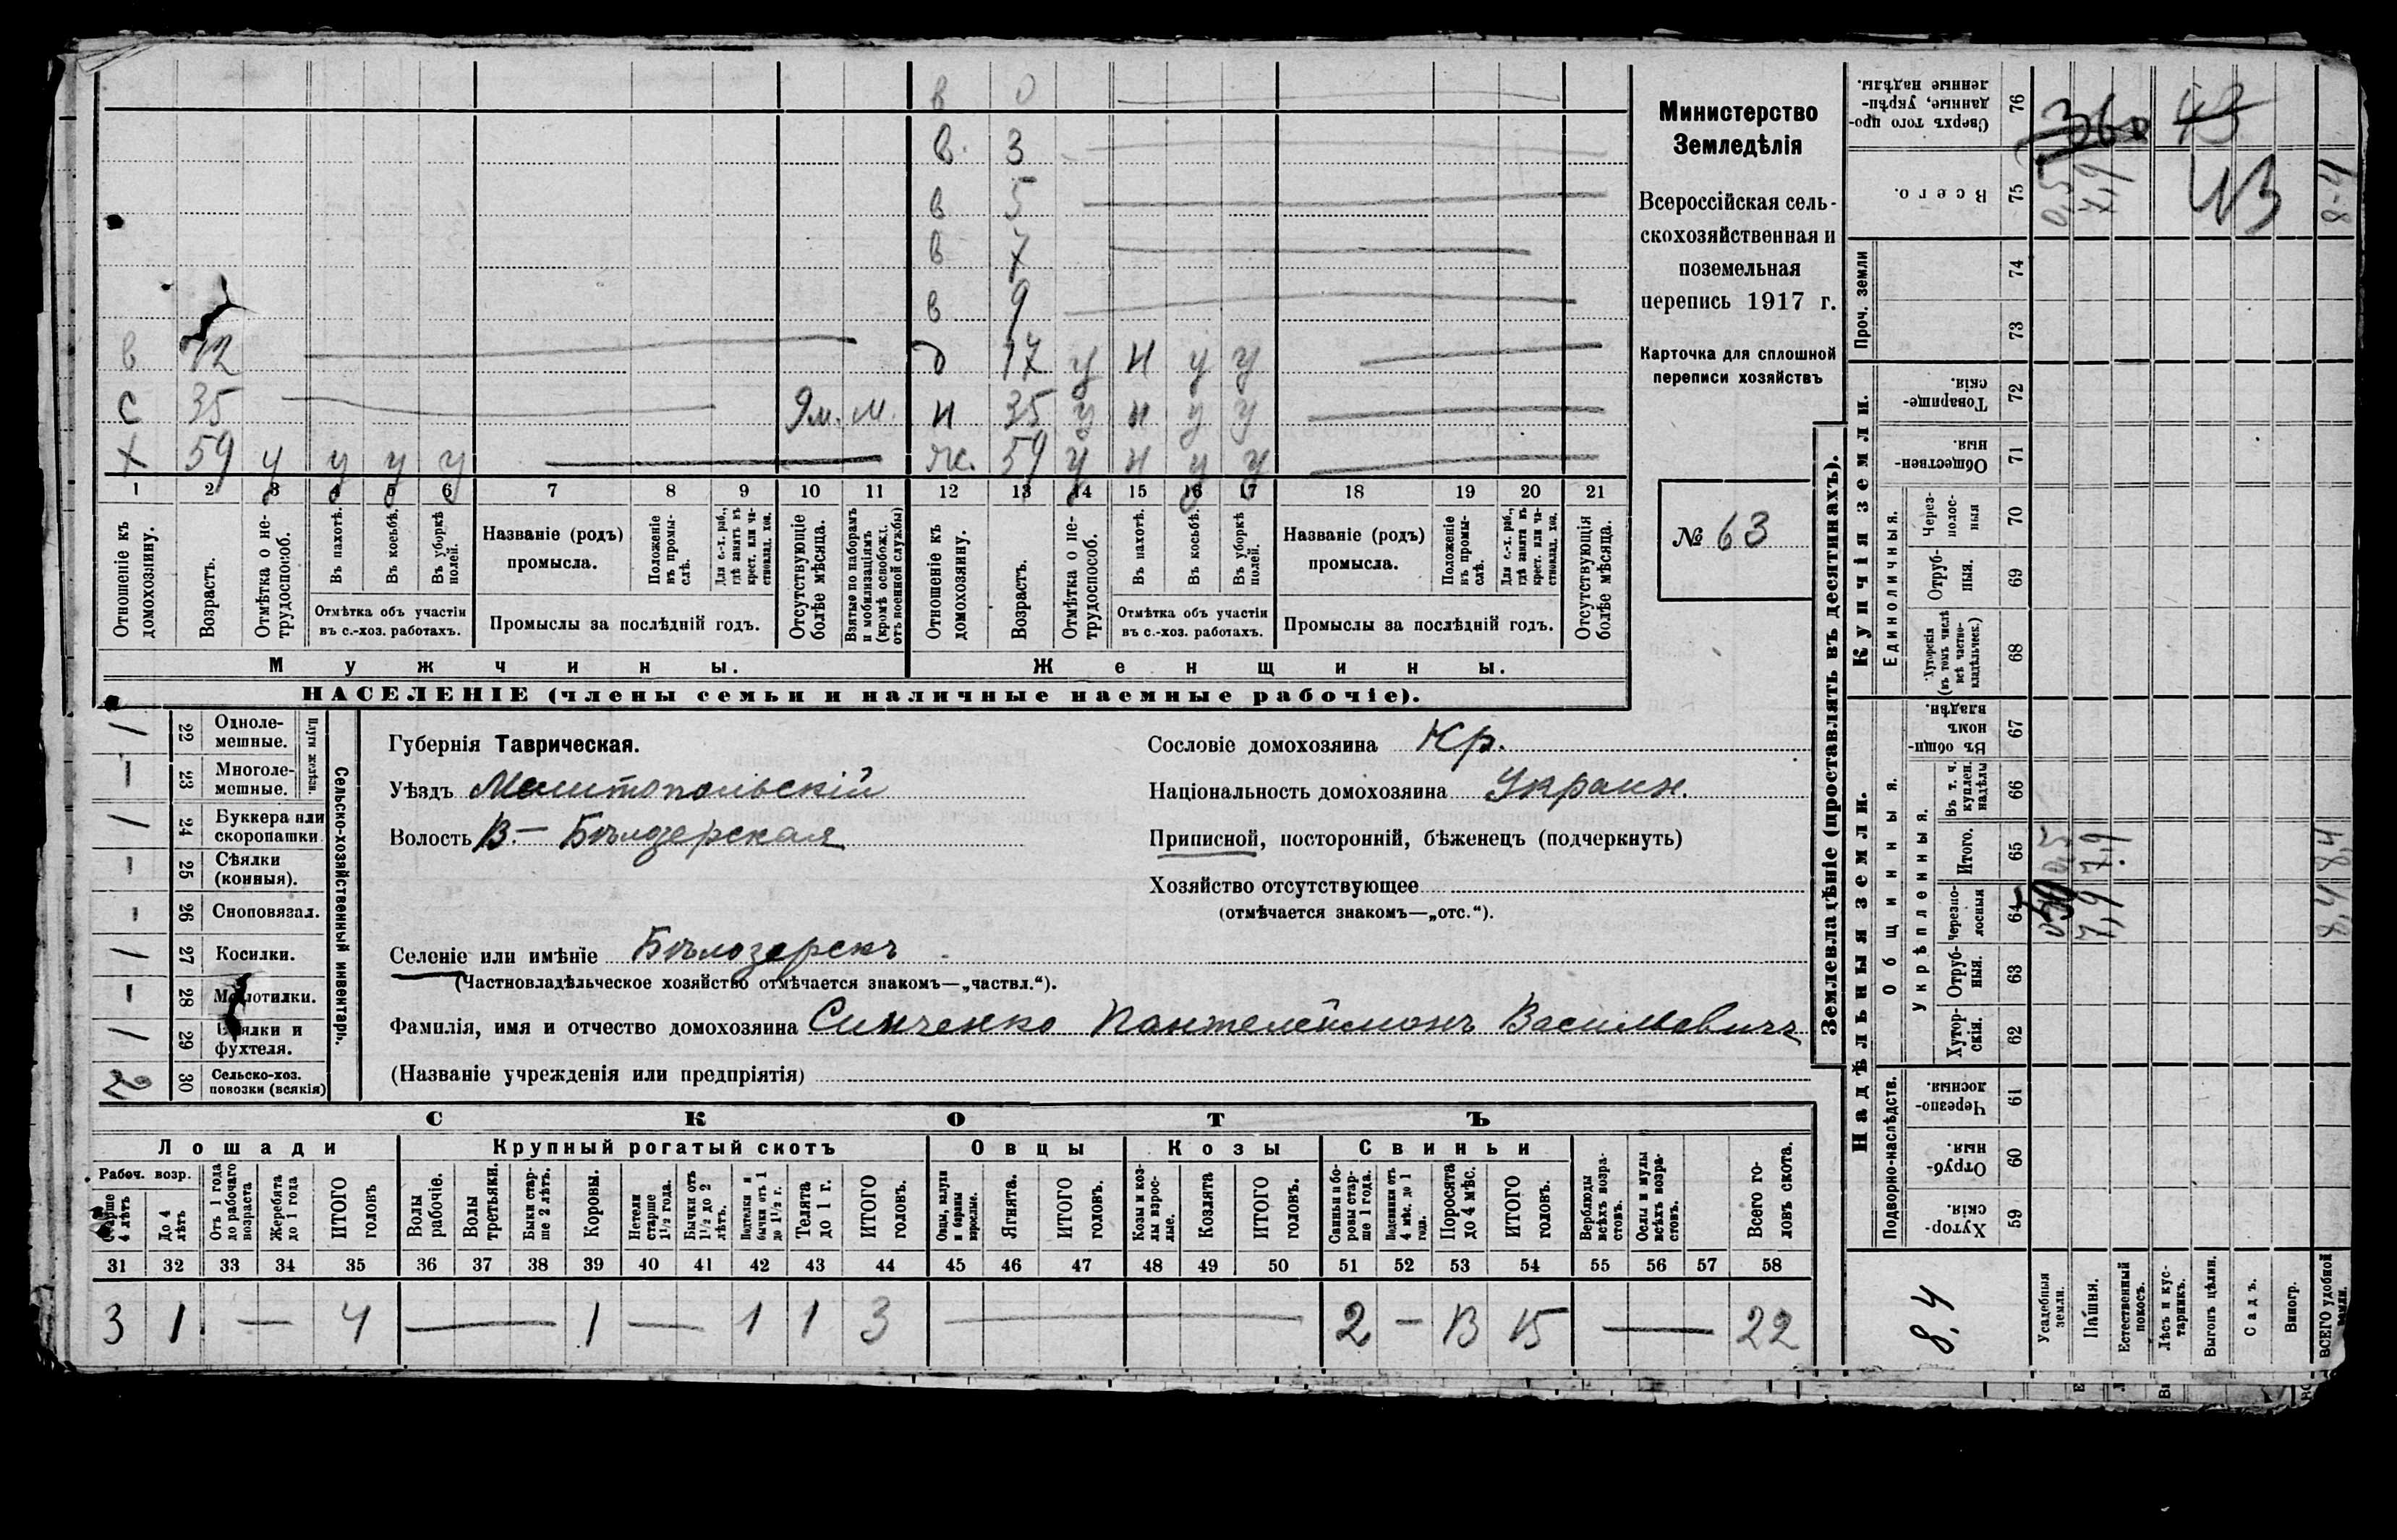 в 0
в. 3
в 5
в 7
в 9
в 12 д 17 у н у у
с 35 9м. м. н 35 у н у у
х 59 у у у у ж. 59 у н у у
1 2 3 4 5 6 7 8 9 10 11 12 13 14 15 16 17 18 19 20 21
Отношеніе къ домохозяину.
Возрастъ.
Отмѣтка о не-трудоспособ.
Въ пахотѣ.
Въ косьбѣ.
Въ уборкѣ полей.
Отмѣтка объ участіи въ с.-хоз. работахъ.
Названіе (родъ) промысла.
Положеніе въ промы-слѣ.
Для с.-х. раб., гдѣ занятъ въ крест. или ча-стновлад. хоз.
Промыслы за послѣдній годъ.
Отсутствующіе болѣе мѣсяца.
Взятые по наборамъ и мобилизаціямъ (кромѣ освобожд. отъ военной службы)
Отношеніе къ домохозяину.
Возрастъ.
Отмѣтка о не-трудоспособ.
Въ пахотѣ.
Въ косьбѣ.
Въ уборкѣ полей.
Отмѣтка объ участіи въ с.-хоз. работахъ.
Названіе (родъ) промысла.
Положеніе въ промы-слѣ.
Для с.-х. раб., гдѣ занята въ крест. или ча-стновлад. хоз.
Промыслы за послѣдній годъ.
Отсутствующія болѣе мѣсяца.
Мужчины. Женщины.
НАСЕЛЕНІЕ (члены семьи и наличные наемные рабочіе).
Министерство
Земледѣлія
Всероссійская сель-
скохозяйственная и
поземельная
перепись 1917 г.
Карточка для сплошной
переписи хозяйствъ
№ 63
Сельско-хозяйственный инвентарь.
Плуги желѣзн.
/ 22 Одноле-мешные.
– 23 Многоле-мешные.
/ 24 Буккера или скоропашки.
– 25 Сѣялки (конныя).
– 26 Сноповязал.
/ 27 Косилки.
– 28 Молотилки.
/ 29 Вѣялки и фухтеля.
2 30 Сельско-хоз. повозки (всякія)
Губернія Таврическая.
Уѣздъ Мелитопольскій
Волость В.– Бѣлозерская
Сословіе домохозяина Кр.
Національность домохозяина Украин.
Приписной, посторонній, бѣженецъ (подчеркнуть)
Хозяйство отсутствующее
(отмѣчается знакомъ—„отс.“).
Селеніе или имѣніе Бѣлозерскъ
(Частновладѣльческое хозяйство отмѣчается знакомъ—„частвл.“).
Фамилія, имя и отчество домохозяина Синченко Пантелеймонъ Васильевичъ
(Названіе учрежденія или предпріятія)
СКОТЪ
Лошади Крупный рогатый скотъ Овцы Козы Свиньи
Рабоч. возр.
Старше 4 лѣтъ
До 4 лѣтъ
Отъ 1 года до рабочаго возраста
Жеребята до 1 года
ИТОГО головъ
Волы рабочіе.
Волы третьяки.
Быки стар-ше 2 лѣтъ.
Коровы.
Нетели старше 1½ года.
Бычки отъ 1½ до 2 лѣтъ.
Подтелки и бычки отъ 1 до 1½ г.
Телята до 1 г.
ИТОГО головъ.
Овцы, валухи и бараны взрослые.
Ягнята.
ИТОГО головъ.
Козы и коз-лы взрос-лые.
Козлята
ИТОГО головъ.
Свиньи и бо-ровы стар-ше 1 года.
Подсвинки отъ 4 мѣс. до 1 года.
Поросята до 4 мѣс.
ИТОГО головъ.
Верблюды всѣхъ возра-стовъ.
Ослы и мулы всѣхъ возра-стовъ.
Всего го-ловъ скота.
31 32 33 34 35 36 37 38 39 40 41 42 43 44 45 46 47 48 49 50 51 52 53 54 55 56 57 58
3 1 — 4 — 1 — 1 1 3 — 2 – 13 15 — 22
Землевладѣніе (проставлять въ десятинахъ).
Надѣльныя земли. Купчія земли. Проч. земли
Подворно-наслѣдств. Общинныя. Единоличныя.
Укрѣпленныя.
59 Хутор-скія.
60 Отруб-ныя.
61 Черезпо-лосныя.
62 Хутор-скія.
63 Отруб-ныя.
64 Черезпо-лосныя 7,9 8,4
65 Итого. 7,9 8,4
66 Въ т. ч. куплен. надѣлы
67 Въ общи-номъ владѣн.
68 Хуторскія (въ томъ числѣ всѣ частно-владѣльческ.)
69 Отруб-ныя.
70 Через-полос-ныя
71 Обществен-ныя
72 Товарище-скія.
73
74
75 Всего. 0,5 7,9 43 8-4
76 Сверхъ того про-данные, укрѣп-ленные надѣлы. 43
8,4
Усадебныя земли.
Пашня.
Естественный покосъ.
Лѣсъ и кус-тарникъ.
Выгонъ цѣлин.
Садъ.
Виногр.
ВСЕГО удобной земли.